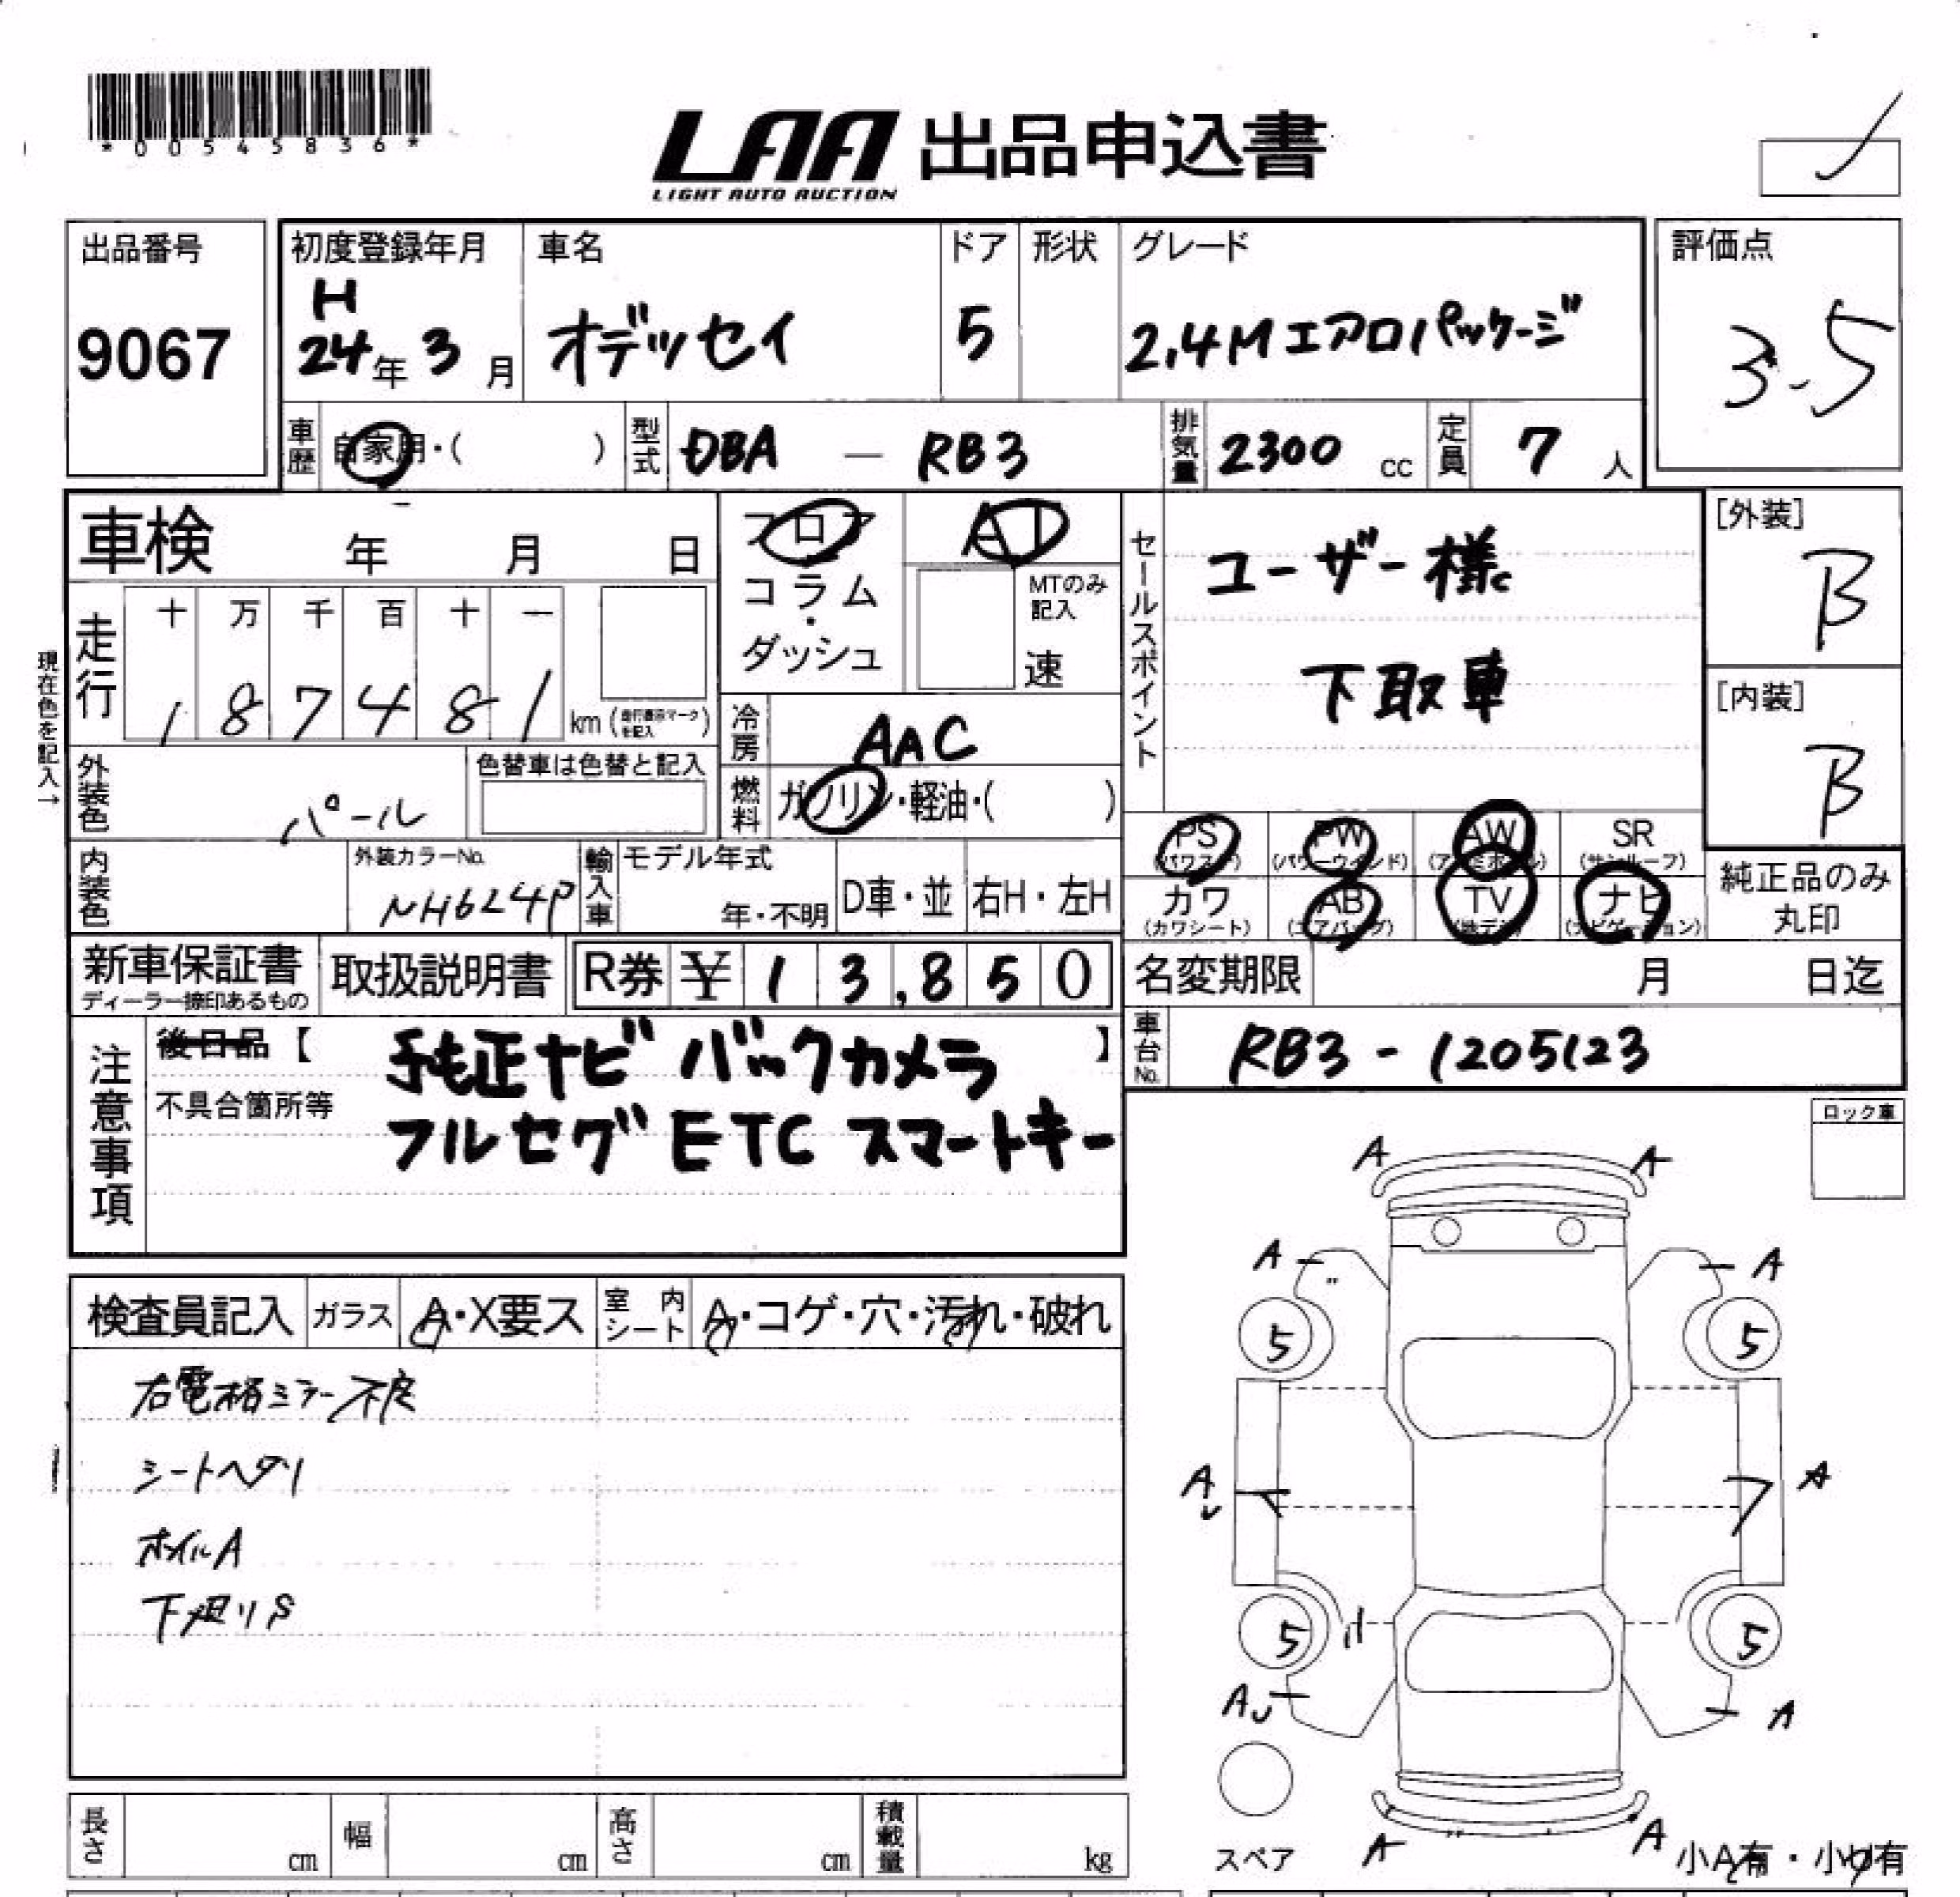 *00545836*
LAA 出品申込書
LIGHT AUTO AUCTION
出品番号
9067
初度登録年月
H
24年 3月
車名
オデッセイ
ドア
5
形状
グレード
2.4Mエアロパッケージ
評価点
3.5
車歴
自家用・( )
型式
DBA — RB3
排気量
2300 cc
定員
7 人
車検 年 月 日
フロア
コラム
・
ダッシュ
AT
MTのみ記入
速
セールスポイント
ユーザー様
下取車
[外装]
B
[内装]
B
現在色を記入→
走行
十 万 千 百 十 一
1 8 7 4 8 1 km (走行表示マークを記入)
冷房
AAC
外装色
パール
色替車は色替と記入
燃料
ガソリン・軽油・( )
PS (パワステ)
PW (パワーウインド)
AW (アルミホイール)
SR (サンルーフ)
カワ (カワシート)
AB (エアバッグ)
TV (地デジ)
ナビ (ナビゲーション)
純正品のみ
丸印
内装色
外装カラーNo.
NH624P
輸入車
モデル年式
年・不明
D車・並
右H・左H
新車保証書
ディーラー捺印あるもの
取扱説明書
R券 ¥ 1 3,8 5 0
名変期限 月 日迄
注意事項
後日品【 】
純正ナビ バックカメラ
不具合箇所等
フルセグ ETC スマートキー
車台No.
RB3-1205123
ロック車
検査員記入
ガラス
A・X要ス
室内シート
A・コゲ・穴・汚れ・破れ
右電格ミラー不良
シートヘタリ
ホイルA
下廻りS
A A
A A
5 5
A A
5 5
A A
スペア
A A
小A有・小U有
長さ cm
幅 cm
高さ cm
積載量 kg